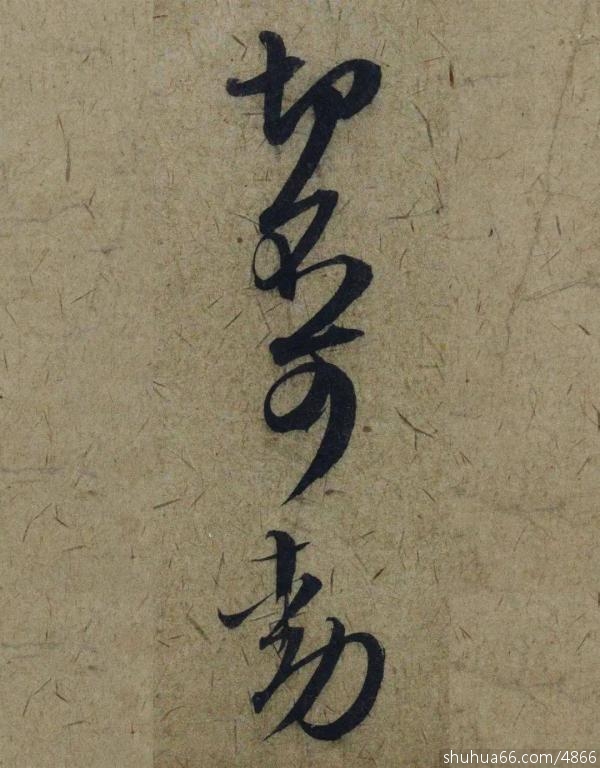 切不可動
shuhua66.com/4866